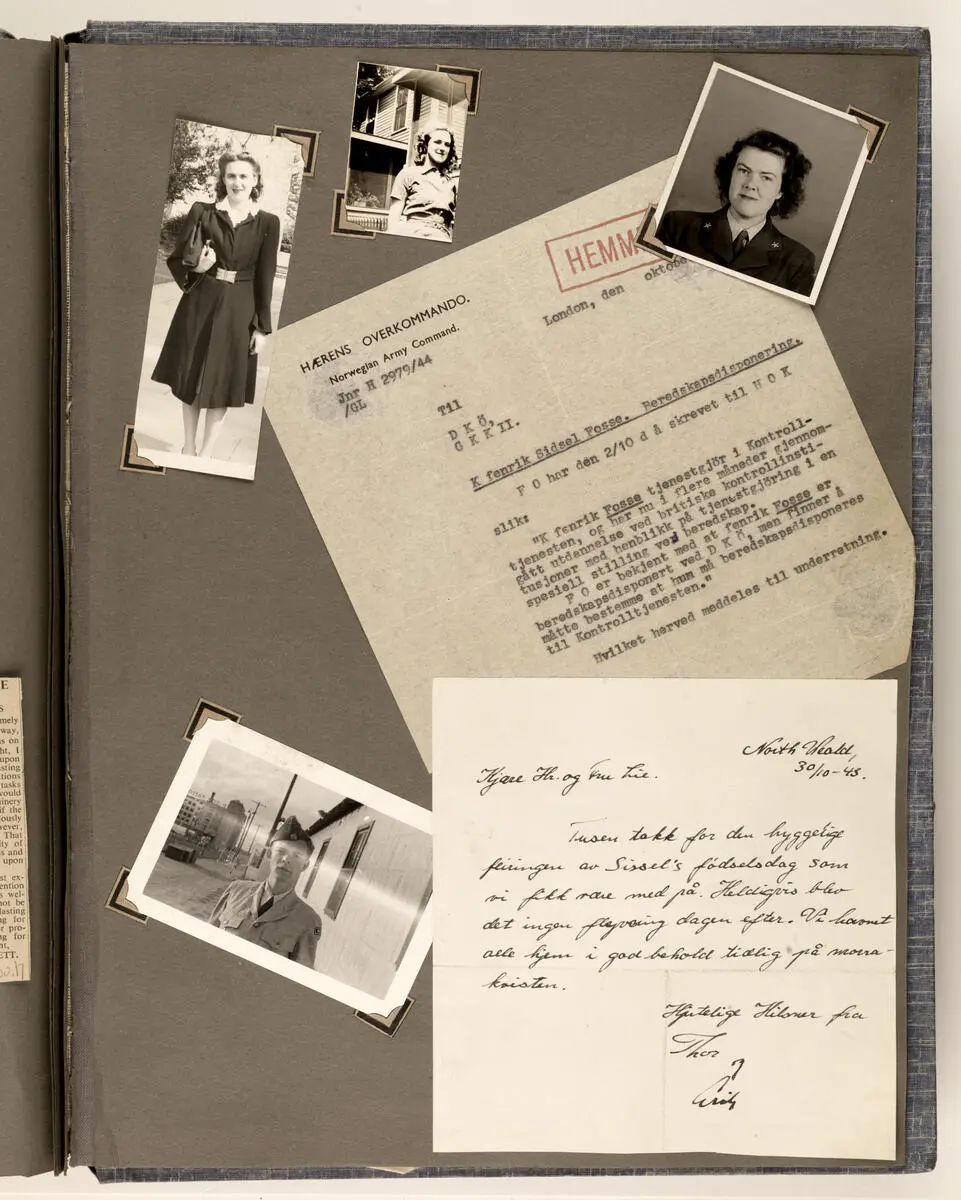 HEMM
London, den oktobe
HÆRENS OVERKOMMANDO.
Norwegian Army Command.
Jnr H 2979/44
/GL
Til
D K Ö,
G K K II.
K fenrik Sidsel Fosse. Beredskapsdisponering.
F O har den 2/10 d å skrevet til H O K
slik:
"K fenrik Fosse tjenestgjör i Kontroll-
tjenesten, og har nu i flere måneder gjennom-
gått utdannelse ved britiske kontrollinsti-
tusjoner med henblikk på tjenestgjöring i en
spesiell stilling ved beredskap.
F O er bekjent med at fenrik Fosse er
beredskapsdisponert ved D K Ö, men finner å
måtte bestemme at hun må beredskapsdisponeres
til Kontrolltjenesten."
Hvilket herved meddeles til underretning.
North Weald,
30/10-43.
Kjære Hr. og Fru Lie.
Tusen takk for den hyggelige
feiringen av Sissel's fødselsdag som
vi fikk være med på. Heldigvis blev
det ingen flyveing dagen efter. Vi havnet
alle hjem i god behold tidlig på morra-
kvisten.
Hjertelige Hilsner fra
Thor
E
S
mely
way,
s on
ht, I
upon
sting
tions
tasks
would
inery
if the
ously
vever,
That
ity of
s and
upon
st ex-
ention
s wel-
not be
lasting
ng for
r pro-
ng for
nt,
ETT.